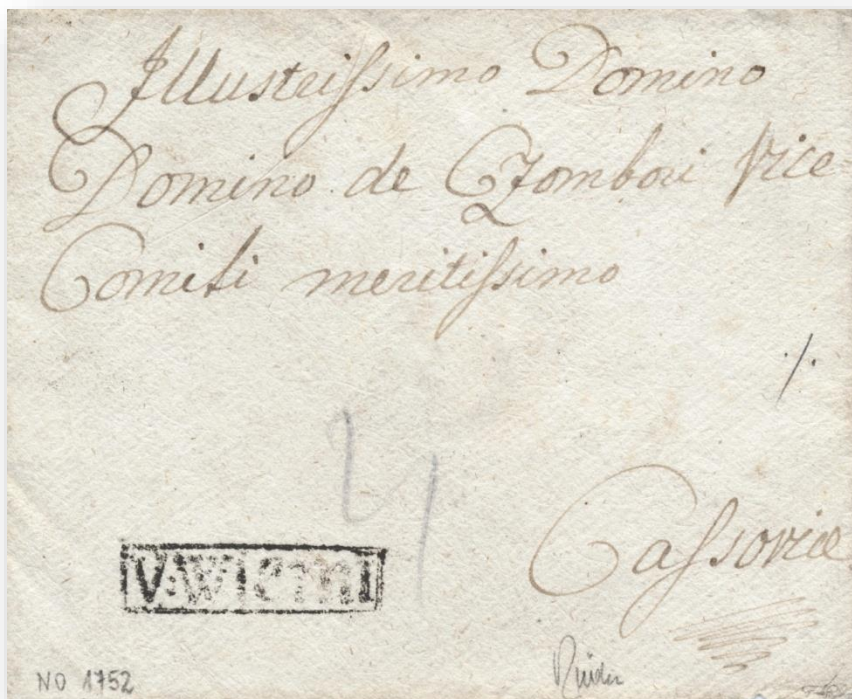 Illustrissimo Domino
Domino de Czombori Vice-
Comiti meritissimo
./.
Cassoviæ
V:WIENN
NO 1752